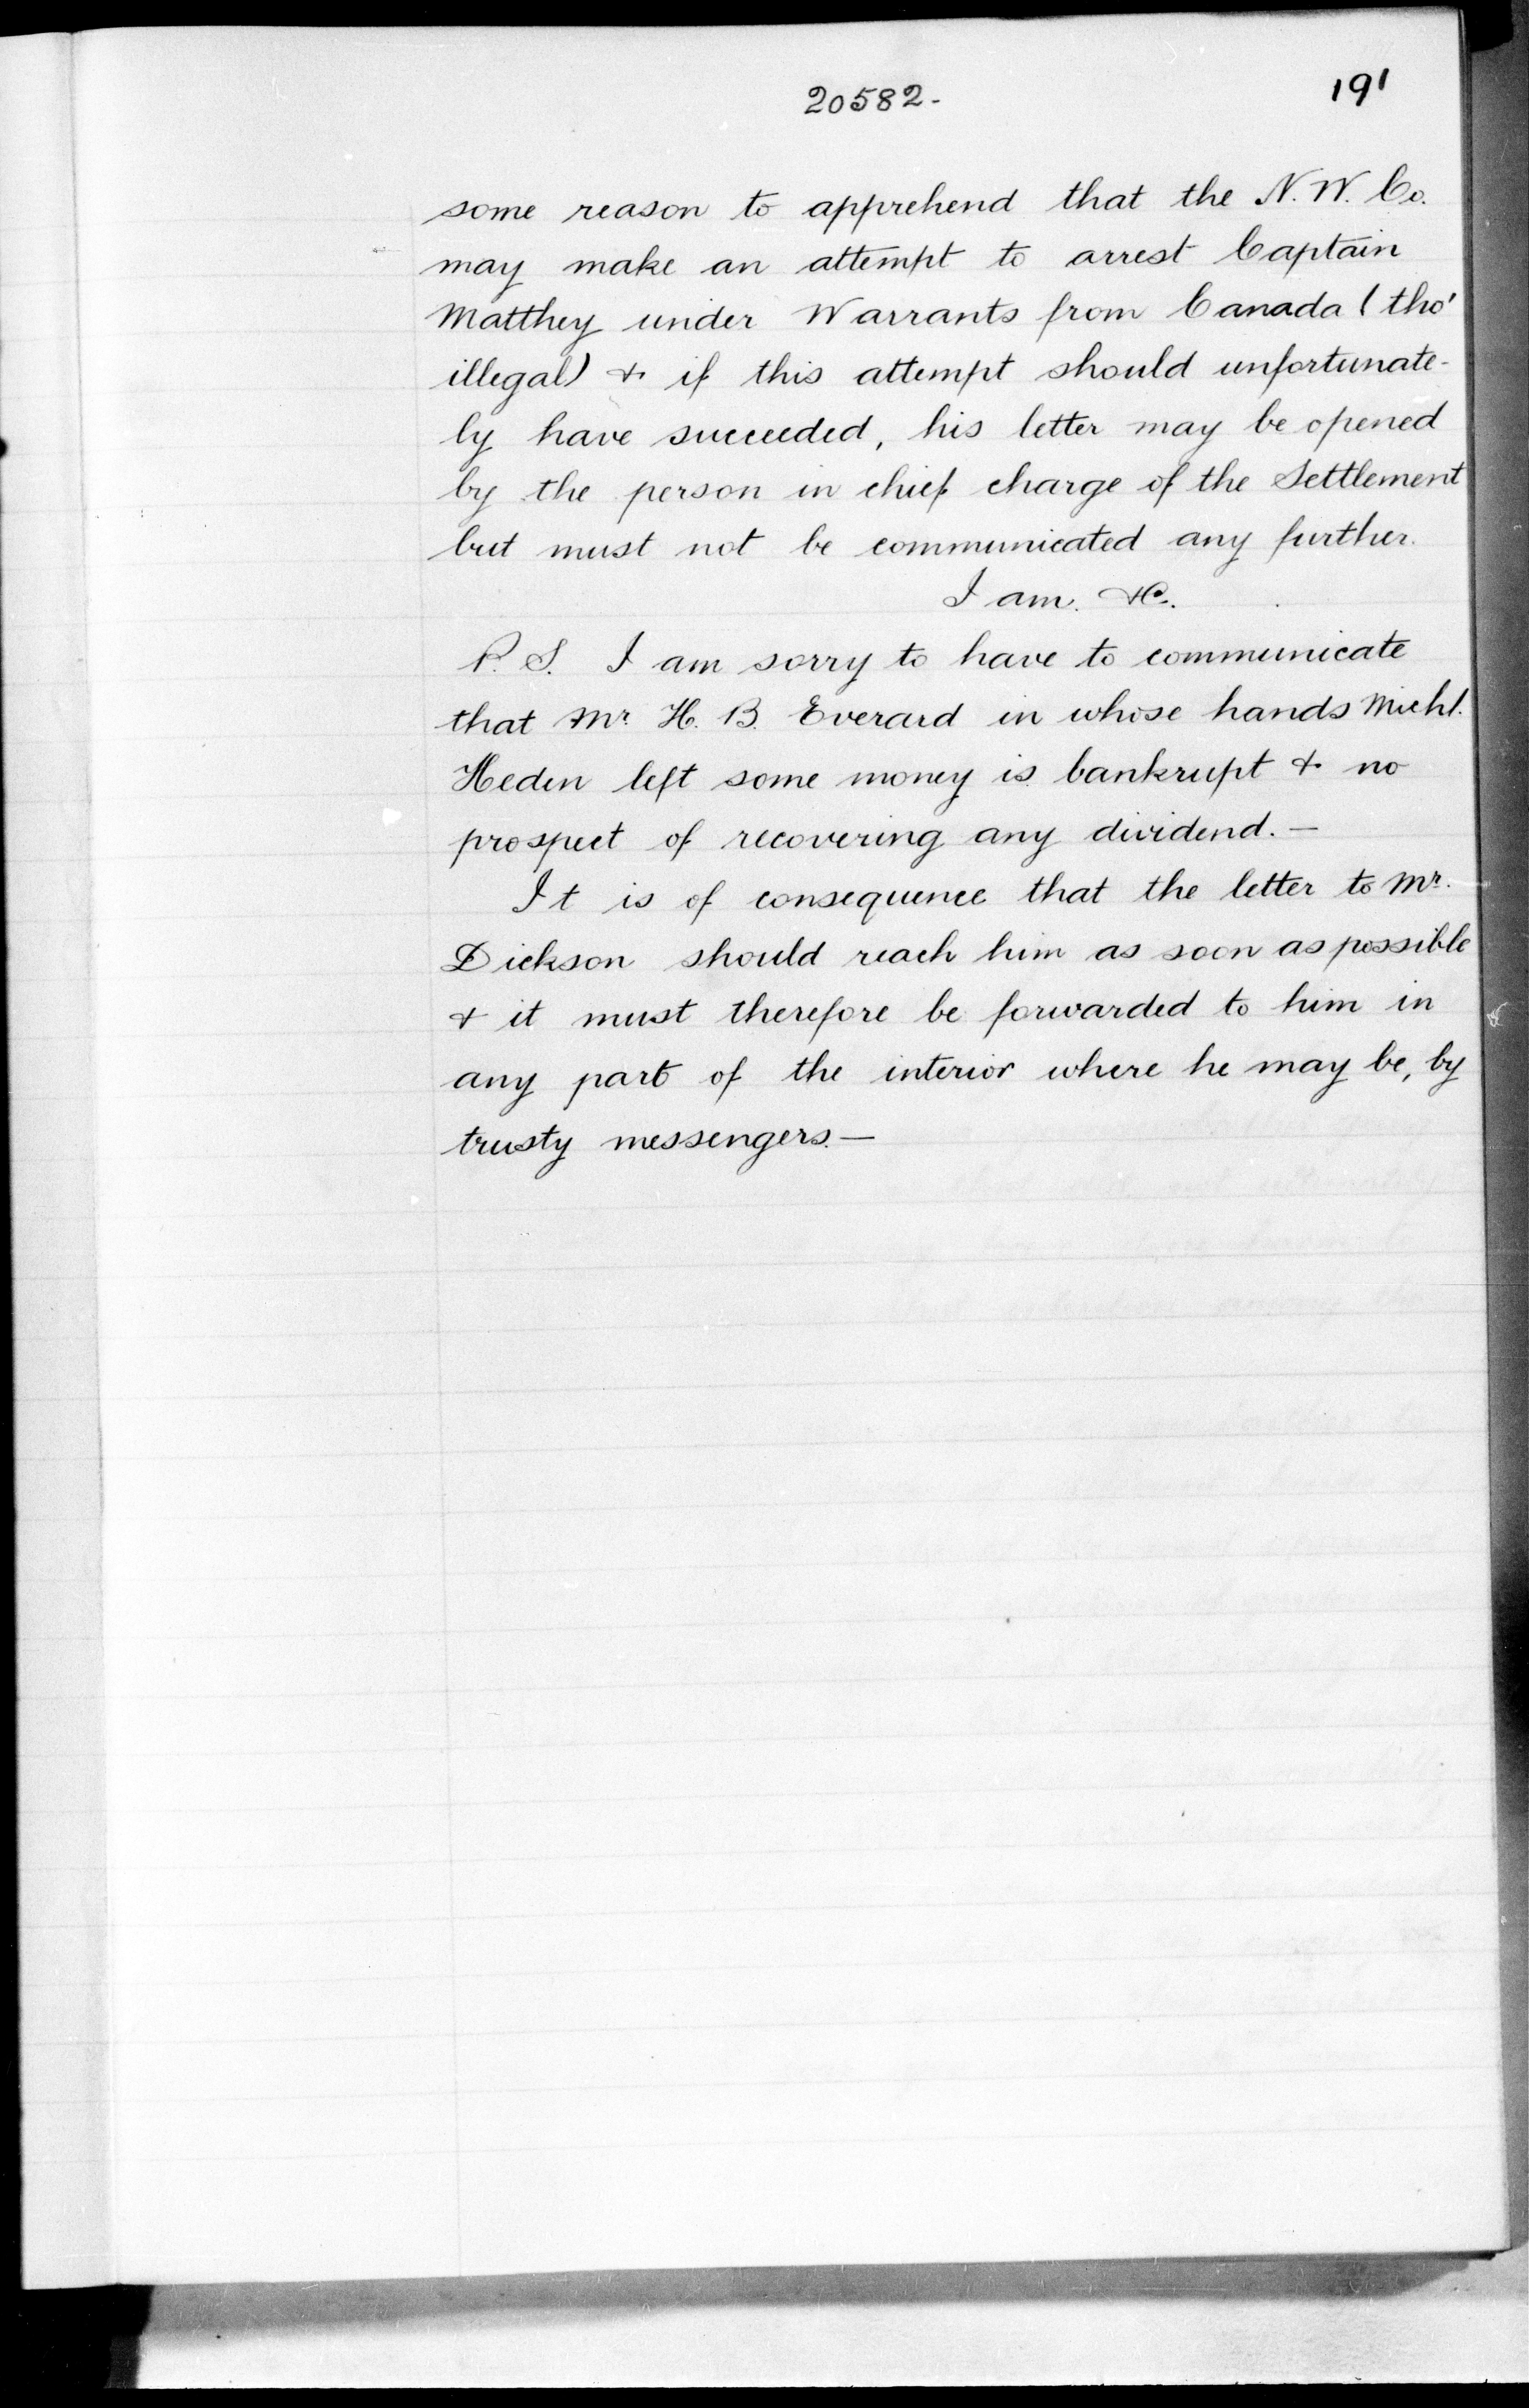 20582-
191
some reason to apprehend that the N. W. Co.
may make an attempt to arrest Captain
Matthey under Warrants from Canada (tho'
illegal) & if this attempt should unfortunate-
ly have succeeded, his letter may be opened
by the person in chief charge of the Settlement
but must not be communicated any further.
I am. &c.
P. S. I am sorry to have to communicate
that Mr. H. B. Everard in whose hands Michl.
Heden left some money is bankrupt & no
prospect of recovering any dividend. —
It is of consequence that the letter to Mr.
Dickson should reach him as soon as possible
& it must therefore be forwarded to him in
any part of the interior where he may be, by
trusty messengers. —